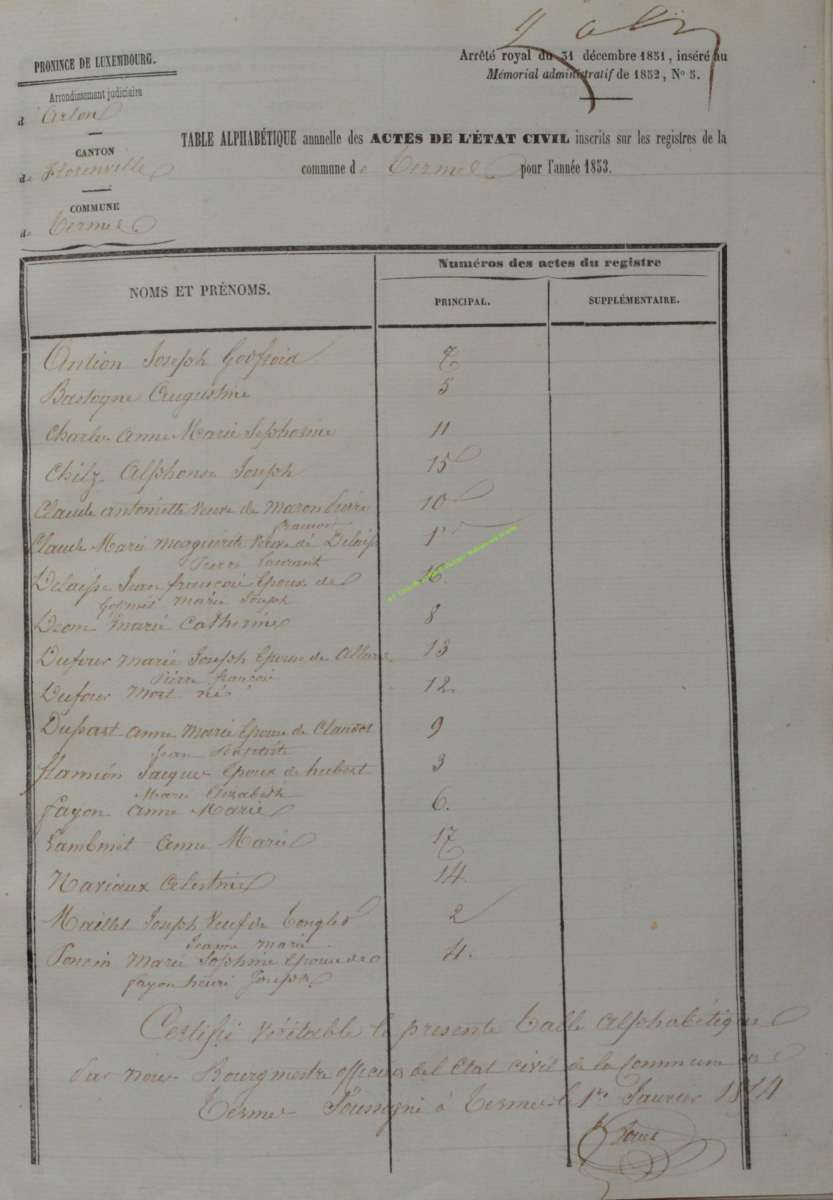 PROVINCE DE LUXEMBOURG.
Arrêté royal du 31 décembre 1851, inséré au
Mémorial administratif de 1852, N° 5.
Arrondissement judiciaire
d'Arlon
CANTON
de Florenville
COMMUNE
de Termes
TABLE ALPHABÉTIQUE annuelle des ACTES DE L'ÉTAT CIVIL inscrits sur les registres de la
commune de Termes pour l'année 1853.
NOMS ET PRÉNOMS.
Numéros des actes du registre
PRINCIPAL.
SUPPLÉMENTAIRE.
Joseph Godfroid 7
Bastogne Augustine 5
Charles Anne Marie Josephine 11
Alphonse Joseph 15
Claude antoinette veuve de Maron Pierre 10
françois
Claude Marie marguerite Veuve de Delaisse 1
Pierre Laurant
Delaisse Jean françois Epoux de 16
marie Joseph
Deom marie Catherine 8
Dufour marie Joseph Epouse de Allard 13
Pierre françois
Dufour Mort né 12.
Dupart anne Marie Epouse de Claudot 9
Jean
flamion Jacques Epoux de hubert 3
Marie Elisabeth
fayon anne Marie 6.
Lambinet Anne Marie 17
Naviaux Celestine 14.
Maillet Joseph Veuf de 2
Jeanne Marie
Poncin Marie Josephine Epouse de 4.
fayon henri Joseph
Certifié véritable la presente table alphabétique
Par nous Bourgmestre officier de l'Etat civil de la Commune de
Termes Soussigné à Termes le 1er Janvier 1854